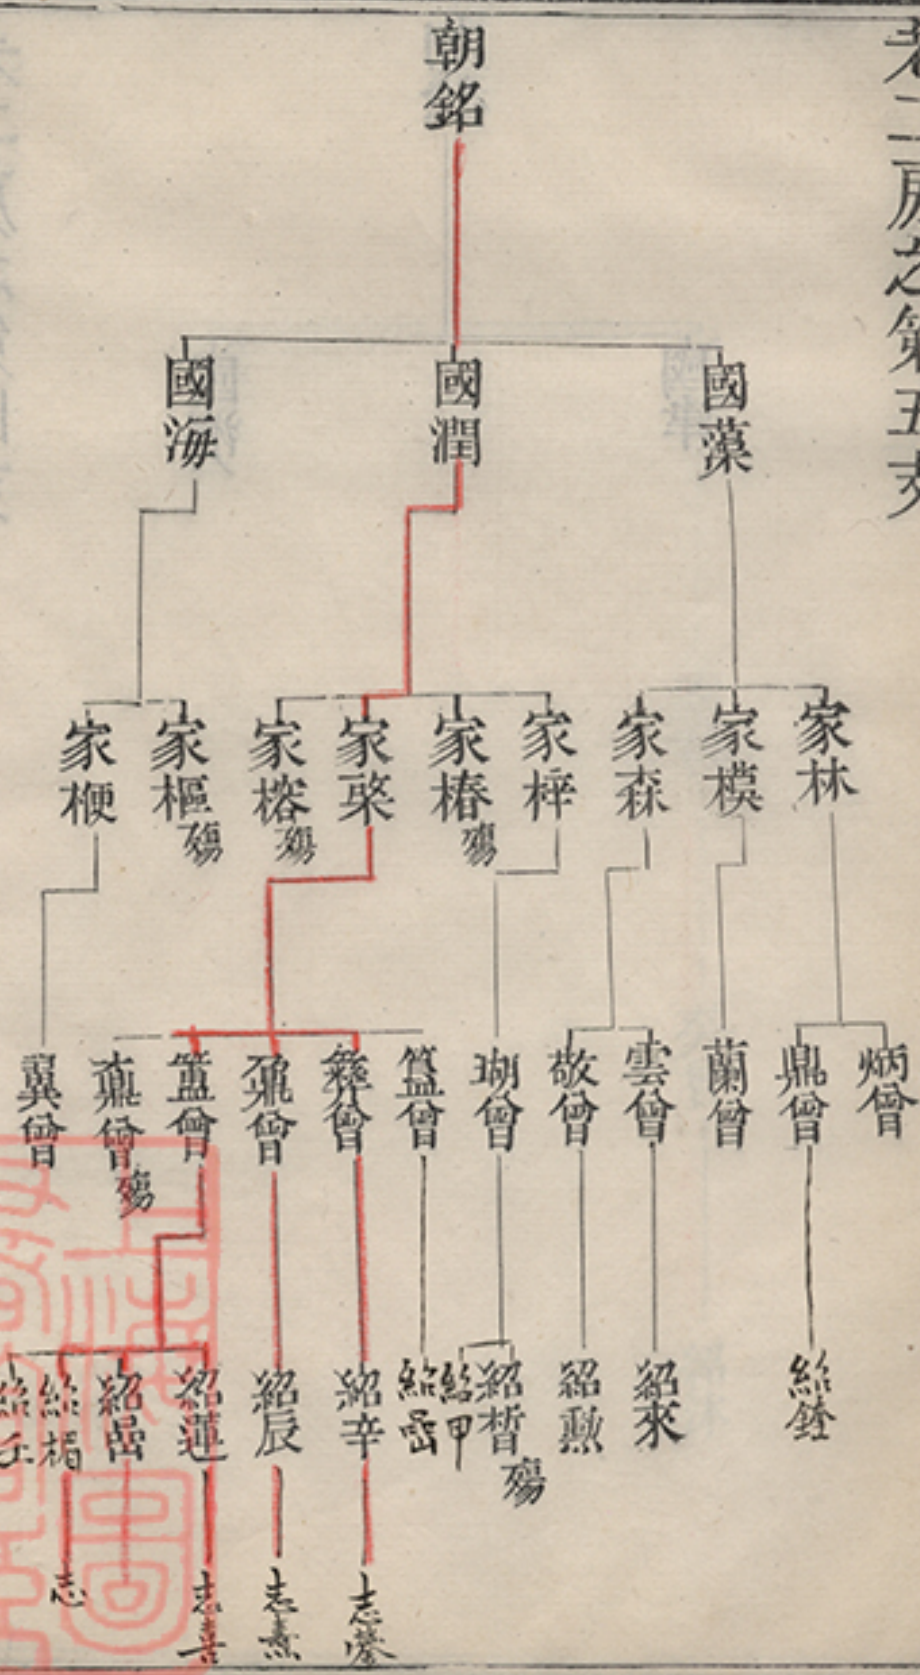 老二房忠第五支
朝銘
國藻
國潤
國海
家林
家模
家森
家梓
家椿 殤
家棨
家榕 殤
家樞 殤
家楩
炳曾
鼎曾
蘭曾
雲曾
敬曾
瑚曾
簋曾
彝曾
鼐曾
簠曾
鼒曾 殤
翼曾
紹來
紹勲
紹皙 殤
紹甲
紹辛
紹辰
紹蓮
紹嵒
紹楣
志喜
志熹
志